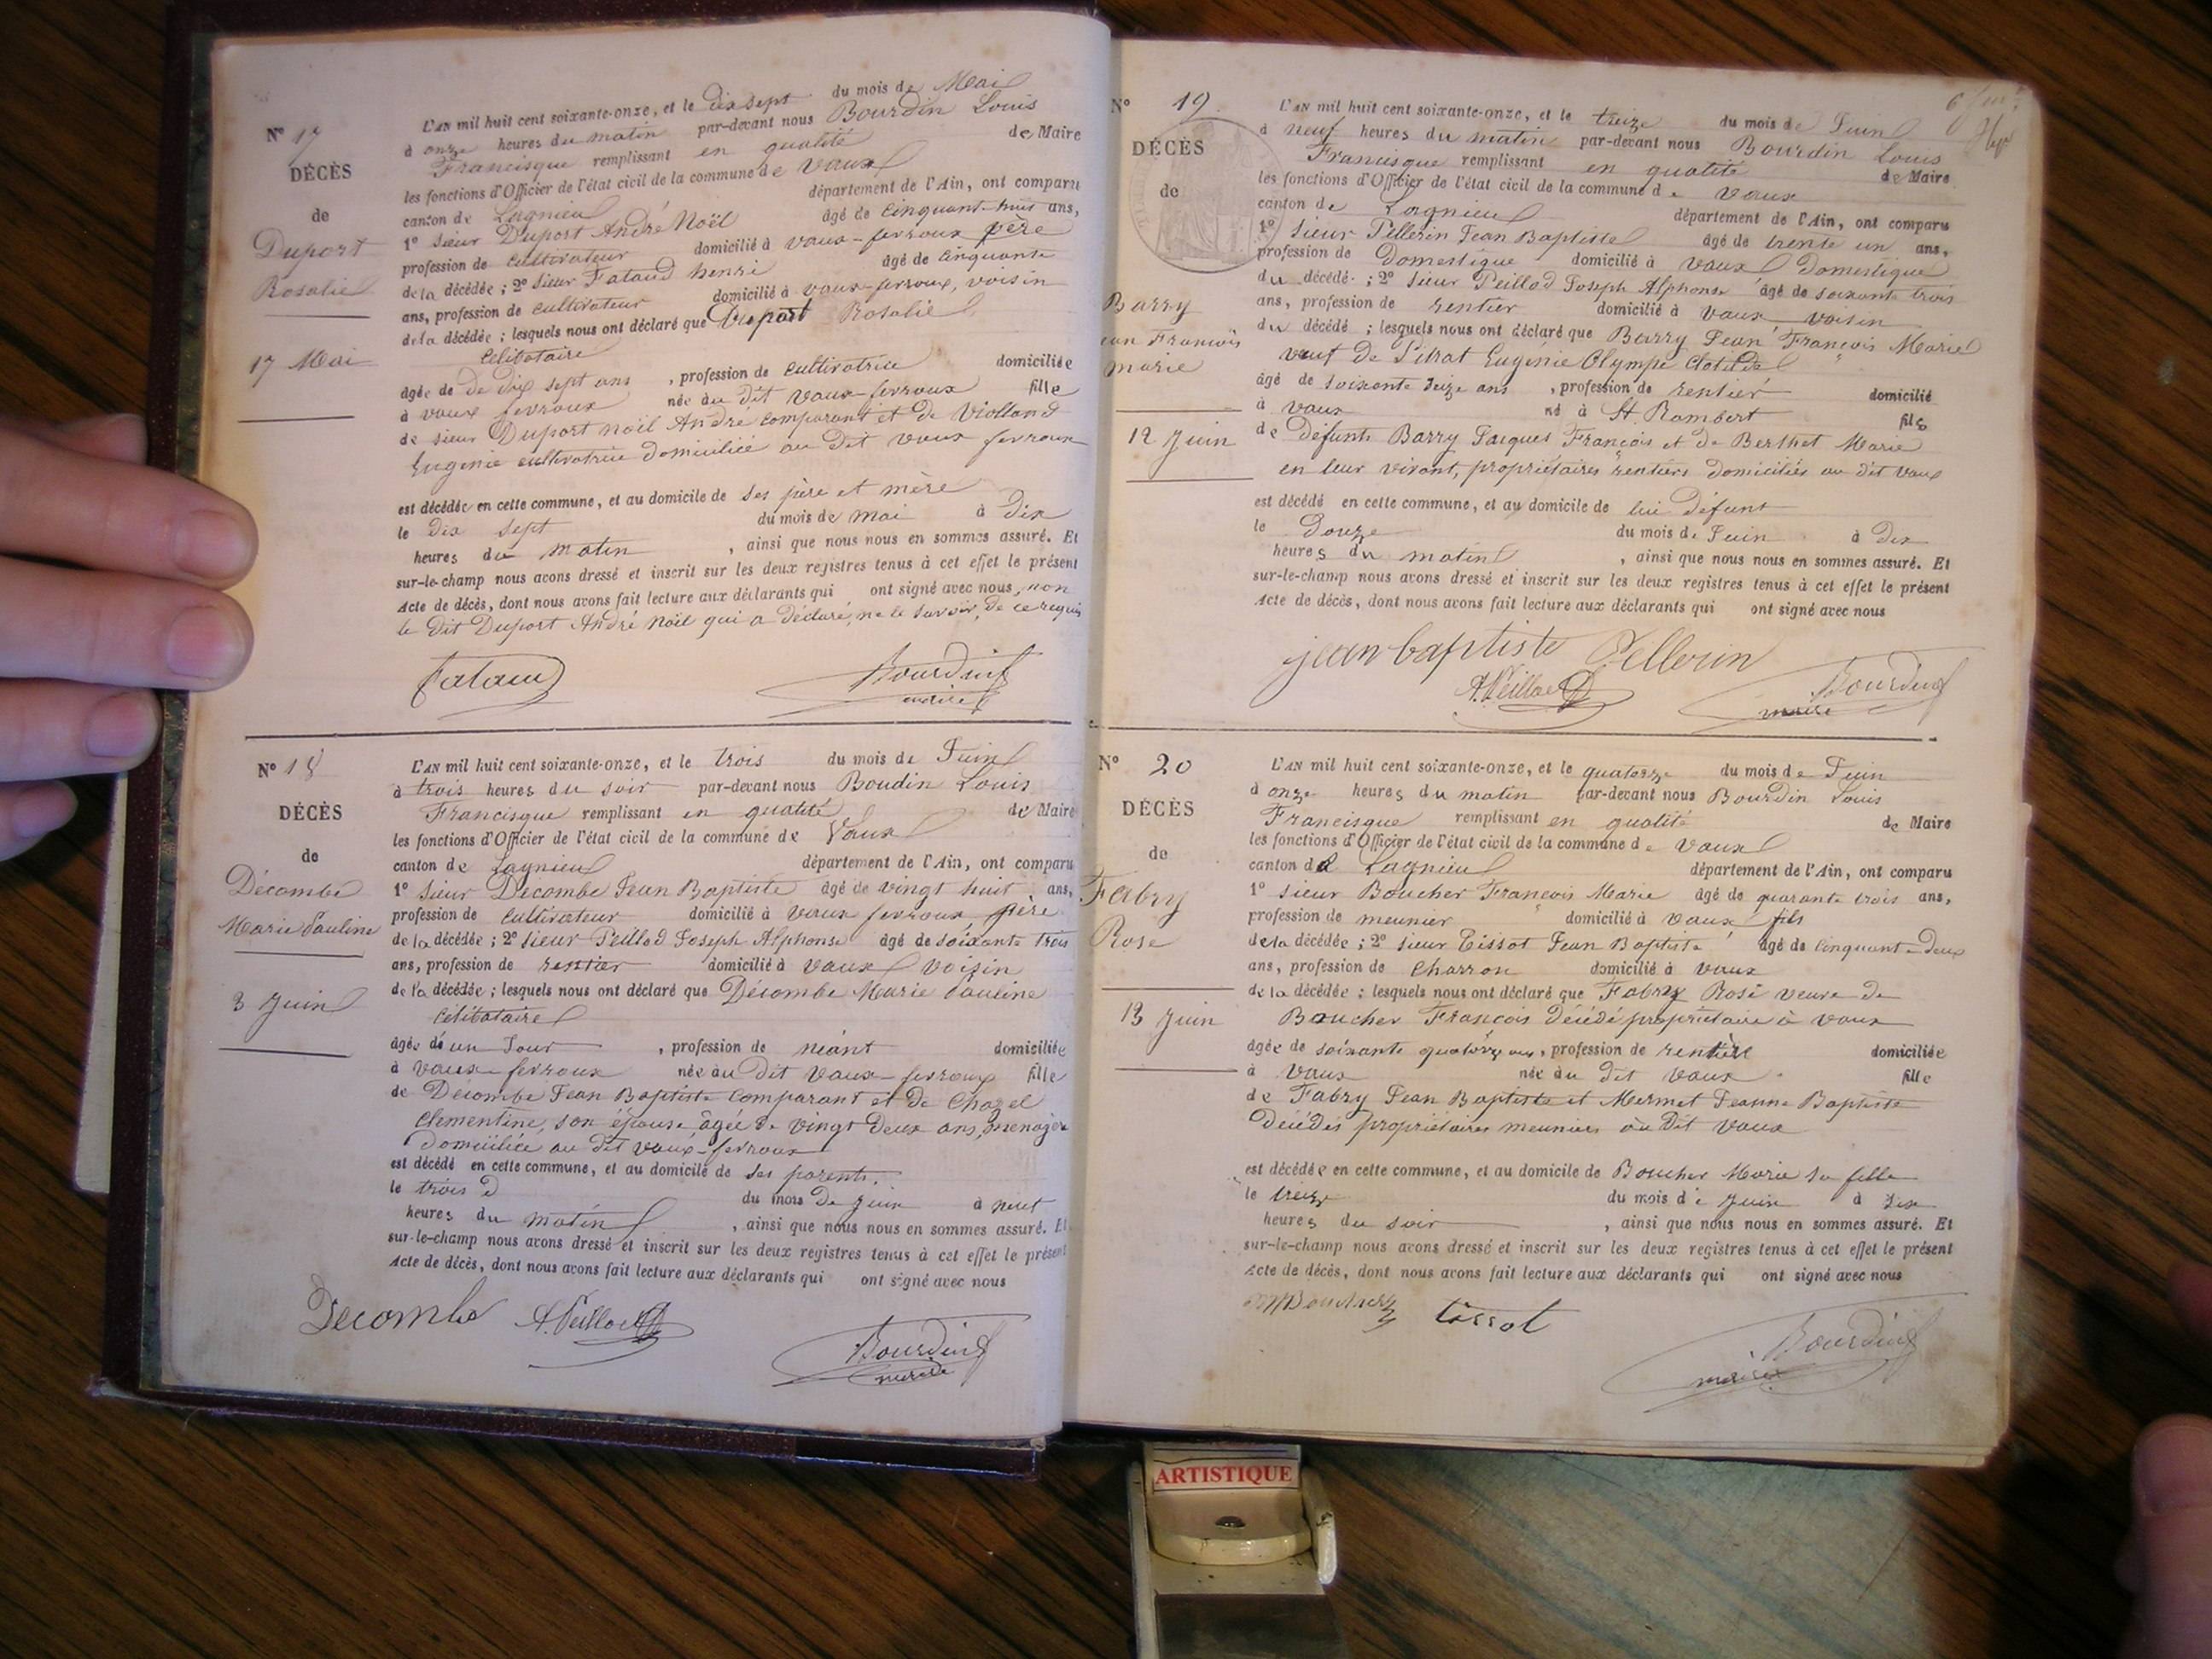 N° 17
DÉCÈS
de
Duport
Rosalie
17 Mai
L'AN mil huit cent soixante-onze, et le dix sept du mois de Mai
à onze heures du matin par-devant nous Bourdin Louis
Francisque remplissant en qualité de Maire
les fonctions d'Officier de l'état civil de la commune de Vaux
canton de Lagnieu département de l'Ain, ont comparu
1° Sieur Duport André Noël âgé de cinquant-huit ans,
profession de cultivateur domicilié à vaux-fevroux père
de la décédée ; 2° Sieur Fataud henri âgé de cinquante
ans, profession de cultivateur domicilié à vaux-fevroux, voisin
de la décédée ; lesquels nous ont déclaré que Duport Rosalie
celibataire
âgée de de dix sept ans , profession de cultivatrice domiciliée
à vaux fevroux née au dit vaux-fevroux fille
de sieur Duport noël André comparant et de Violland
Eugenie cultivatrice domiciliée au dit vaux fevroux
est décédée en cette commune, et au domicile de ses père et mère
le dix sept du mois de mai à dix
heures du matin , ainsi que nous nous en sommes assuré. Et
sur-le-champ nous avons dressé et inscrit sur les deux registres tenus à cet effet le présent
Acte de décès, dont nous avons fait lecture aux déclarants qui ont signé avec nous, non
le dit Duport André Noël qui a déclaré ne le savoir, de ce requis
Fataud Bourdin
maire
N° 18
DÉCÈS
de
Décombe
Marie Pauline
3 Juin
L'AN mil huit cent soixante-onze, et le trois du mois de Juin
à trois heures du soir par-devant nous Boudin Louis
Francisque remplissant en qualité de Maire
les fonctions d'Officier de l'état civil de la commune de Vaux
canton de Lagnieu département de l'Ain, ont comparu
1° Sieur Decombe Jean Baptiste âgé de vingt huit ans,
profession de cultivateur domicilié à vaux fevroux père
de la décédée ; 2° sieur Peillod Joseph Alphonse âgé de soixante trois
ans, profession de rentier domicilié à vaux voisin
de la décédée ; lesquels nous ont déclaré que Décombe Marie Pauline
celibataire
âgée de un jour , profession de néant domiciliée
à vaux-fevroux née au dit vaux-fevroux fille
de Décombe Jean Baptiste comparant et de Chazel
Clementine, son épouse âgée de vingt deux ans, menagère
domiciliée au dit vaux-fevroux
est décédé en cette commune, et au domicile de ses parents.
le trois du mois de Juin à neuf
heures du matin , ainsi que nous nous en sommes assuré. Et
sur-le-champ nous avons dressé et inscrit sur les deux registres tenus à cet effet le présent
Acte de décès, dont nous avons fait lecture aux déclarants qui ont signé avec nous
Decombe A. Peillod
Bourdin
maire
N° 19
DÉCÈS
de
Barry
Jean François
marie
12 Juin
L'AN mil huit cent soixante-onze, et le treize du mois de Juin
à neuf heures du matin par-devant nous Bourdin Louis
Francisque remplissant en qualité de Maire
les fonctions d'Officier de l'état civil de la commune de vaux
canton de Lagnieu département de l'Ain, ont comparu
1° sieur Pellerin Jean Baptiste âgé de trente un ans,
profession de Domestique domicilié à vaux Domestique
du décédé ; 2° sieur Peillod Joseph Alphonse âgé de soixante trois
ans, profession de rentier domicilié à vaux voisin
du décédé ; lesquels nous ont déclaré que Barry Jean François Marie
veuf de Sitrat Eugénie Olympe Clotilde
âgé de soixante seize ans , profession de rentier domicilié
à vaux né à St. Rambert fils
de défunts Barry Jacques François et de Berthet Marie
en leur vivant, propriétaires rentiers domiciliés au dit vaux
est décédé en cette commune, et au domicile de lui défunt
le Douze du mois de Juin à dix
heures du matin , ainsi que nous nous en sommes assuré. Et
sur-le-champ nous avons dressé et inscrit sur les deux registres tenus à cet effet le présent
Acte de décès, dont nous avons fait lecture aux déclarants qui ont signé avec nous
jean baptiste Pellerin
A. Peillod Bourdin
maire
N° 20
DÉCÈS
de
Fabry
Rose
13 Juin
L'AN mil huit cent soixante-onze, et le quatorze du mois de Juin
à onze heures du matin par-devant nous Bourdin Louis
Francisque remplissant en qualité de Maire
les fonctions d'Officier de l'état civil de la commune de vaux
canton de Lagnieu département de l'Ain, ont comparu
1° sieur Boucher François Marie âgé de quarante trois ans,
profession de meunier domicilié à vaux fils
de la décédée ; 2° sieur Tissot Jean Baptiste âgé de cinquante-deux
ans, profession de charron domicilié à vaux
de la décédée ; lesquels nous ont déclaré que Fabry Rose veuve de
Boucher François décédé propriétaire à vaux
âgée de soixante quatorze ans, profession de rentière domiciliée
à vaux née au dit vaux fille
de Fabry Jean Baptiste et Mermet Jeanne Baptiste
décédés propriétaires meuniers au dit vaux
est décédée en cette commune, et au domicile de Boucher Marie sa fille
le treize du mois de Juin à dix
heures du soir , ainsi que nous nous en sommes assuré. Et
sur-le-champ nous avons dressé et inscrit sur les deux registres tenus à cet effet le présent
Acte de décès, dont nous avons fait lecture aux déclarants qui ont signé avec nous
Boucher tissot
Bourdin
maire
ARTISTIQUE